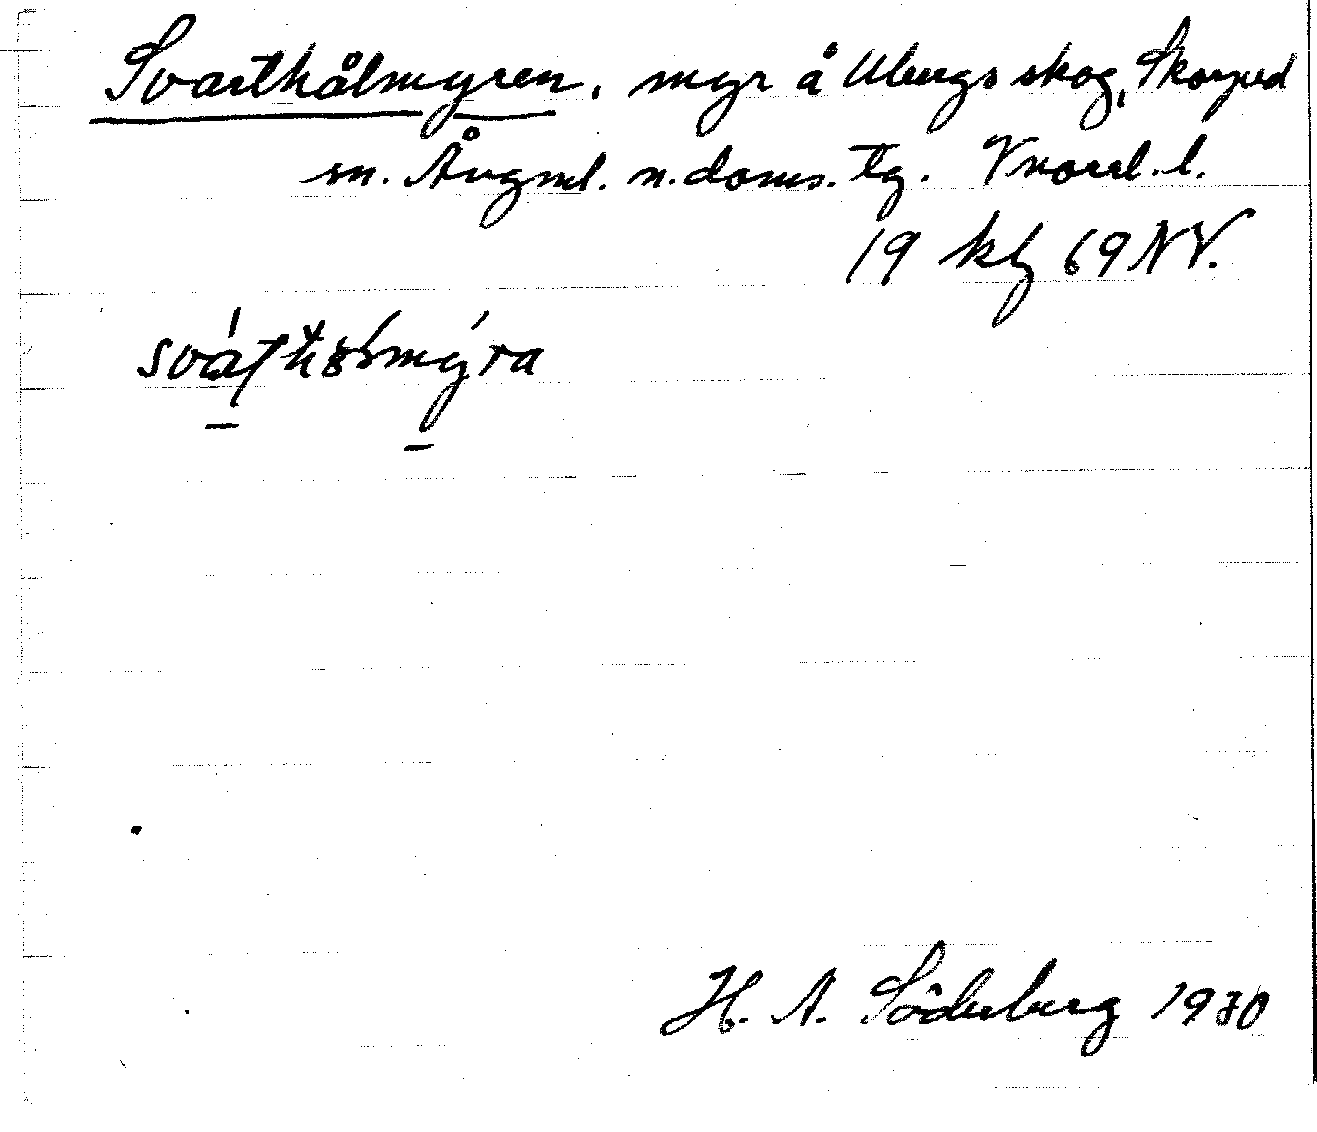 Svarthålmyren, myr å Ulbergs skog, Skorped
sn. Ångml. n. doms. tg. Vnorrl. l.
19 kbl 69 NV.
H. A. Söderberg 1930